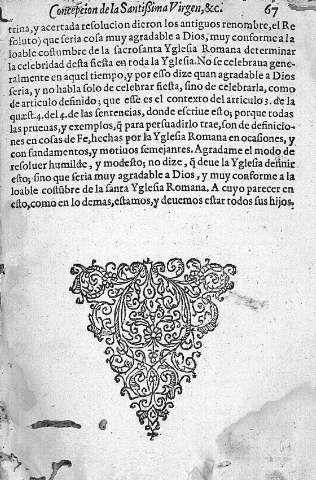 Concepcion de la Santissima Virgen, &c. 67
trina, y acertada resolucion dieron los antiguos renombre, el Re
soluto) que seria cosa muy agradable a Dios, muy conforme a la
loable costumbre de la sacrosanta Yglesia Romana determinar
la celebridad desta fiesta en toda la Yglesia. No se celebraua gene-
ralmente en aquel tiempo, y por esso dize quan agradable a Dios
seria, y no habla solo de celebrar fiesta, sino de celebrarla, como
de articulo definido; que esse es el contexto del articulo 3. de la
quæst. 4. del 4. de las sentencias, donde escriue esto; porque todas
las prueuas, y exemplos, q̃ para persuadirlo trae, son de definicio-
nes en cosas de Fe, hechas por la Yglesia Romana en ocasiones, y
con fundamentos, y motiuos semejantes. Agradame el modo de
resoluer humilde, y modesto; no dize, q̃ deue la Yglesia definir
esto; sino que seria muy agradable a Dios, y muy conforme a la
loable costũbre de la santa Yglesia Romana. A cuyo parecer en
esto, como en lo demas, estamos, y deuemos estar todos sus hijos.